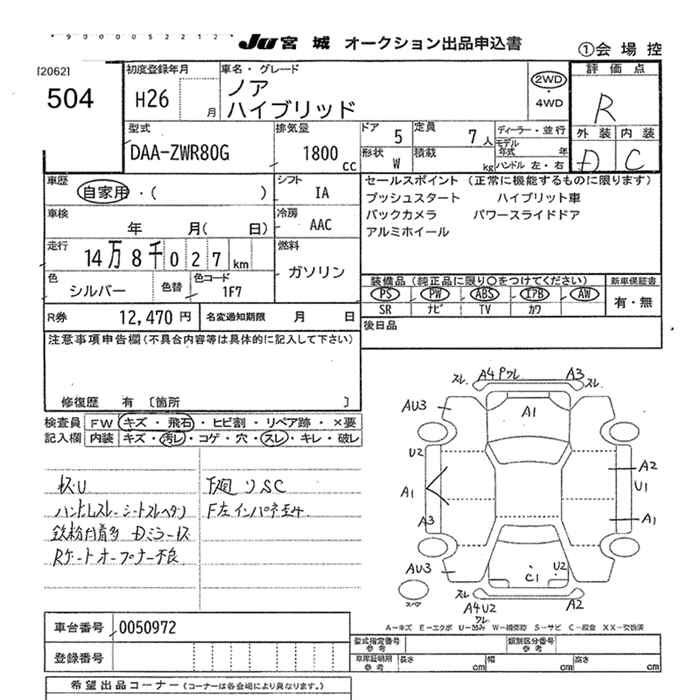 * 9000052212 *
JU 宮城 オークション出品申込書
①会場控
[2062]
504
初度登録年月
H26 月
車名・グレード
ノア
ハイブリッド
2WD
・
4WD
評価点
R
外装 内装
D C
型式
DAA-ZWR80G
排気量
1800 cc
ドア 5
定員 7人
形状 W
積載 kg
ディーラー・並行
モデル年式 年
ハンドル 左・右
車歴
自家用・( )
シフト IA
車検 年 月( 日)
冷房 AAC
走行
14万8千027km
燃料
ガソリン
色 シルバー
色替
色コード 1F7
R券 12,470円
名変通知期限 月 日
セールスポイント (正常に機能するものに限ります)
プッシュスタート ハイブリット車
バックカメラ パワースライドドア
アルミホイール
装備品 (純正品に限り〇をつけてください)
新車保証書
PS PW ABS エアB AW
SR ナビ TV カワ
有・無
後日品
注意事項申告欄(不具合内容等は具体的に記入して下さい)
修復歴 有 〔箇所 〕
検査員記入欄
FW キズ・飛石・ヒビ割・リペア跡・×要
内装 キズ・汚レ・コゲ・穴・スレ・キレ・破レ
ハンドルスレ シートスレヘタリ
Rゲートオープナー不良
スレ A4 Pワレ A3 スレ
AU3
A1
U2
A2
A1
U1
A3
A1
AU3
C1
U2
スペア
スレ A4U2 ワレ
A2
A−キズ E−エクボ U−凹ミ W−補修跡 S−サビ C−腐食 XX−交換済
車台番号 0050972
登録番号
型式指定番号 参考
類別区分番号 参考
車庫証明用 参考
長さ cm
幅 cm
高さ cm
希望出品コーナー (コーナーは各会場により異なります。)